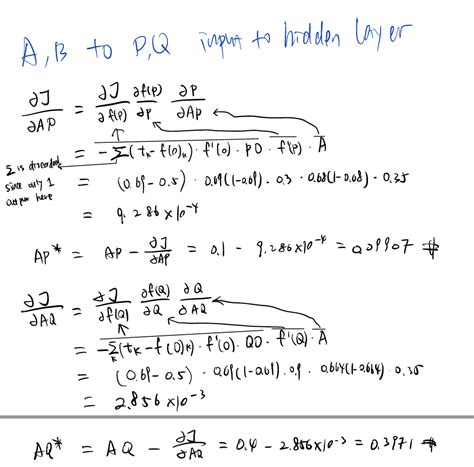 A, B to P, Q input to hidden layer
∂J/∂AP = ∂J/∂f(P) ∂f(P)/∂P ∂P/∂AP
= -Σ(tk - f(O)k) · f'(O) · PO · f'(P) · A
Σ is discarded
since only 1
output here
= (0.69-0.5) · 0.69(1-0.69) · 0.3 · 0.68(1-0.68) · 0.35
= 9.286 x 10^-4
AP* = AP - ∂J/∂AP = 0.1 - 9.286x10^-4 = 0.09907 #
∂J/∂AQ = ∂J/∂f(Q) ∂f(Q)/∂Q ∂Q/∂AQ
= -Σk(tk - f(O)k) · f'(O) · QO · f'(Q) · A
= (0.69-0.5) · 0.69(1-0.69) · 0.9 · 0.664(1-0.664) · 0.35
= 2.856 x 10^-3
AQ* = AQ - ∂J/∂AQ = 0.4 - 2.856x10^-3 = 0.3971 #